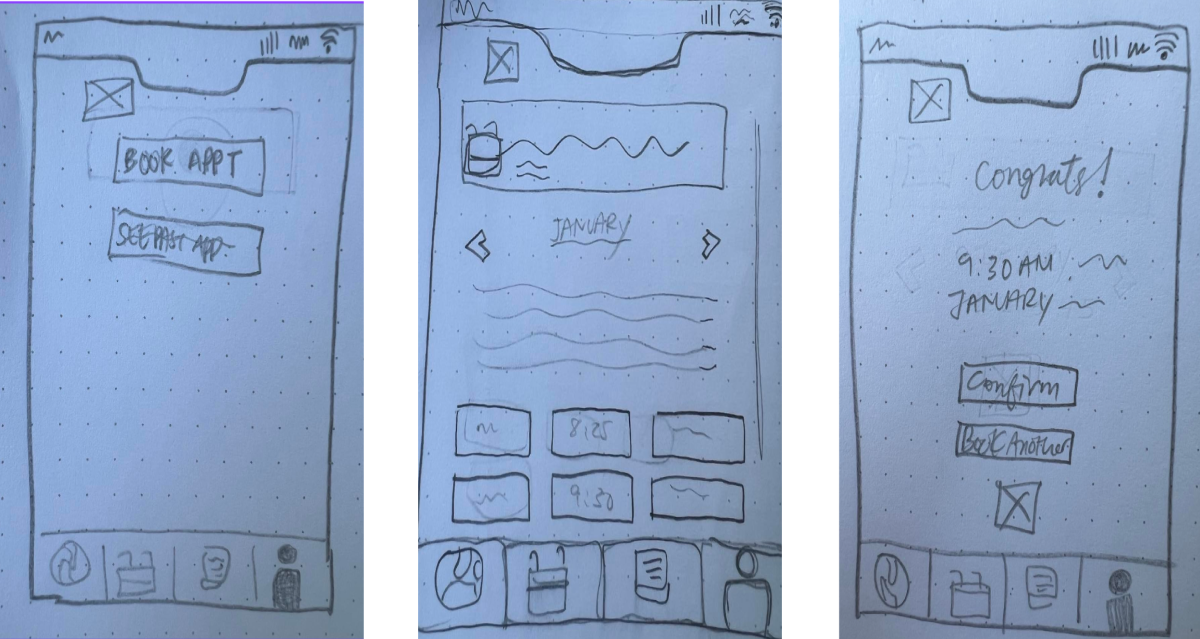 BOOK APPT
SEE PAST APP.
JANUARY
8:25
9:30
Congrats!
9:30AM
JANUARY
Confirm
Book Another